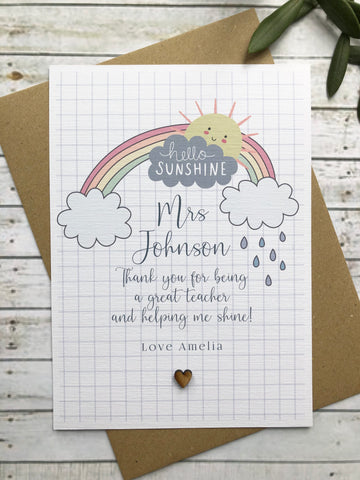 hello
SUNSHINE
Mrs
Johnson
Thank you for being
a great teacher
and helping me shine!
Love Amelia